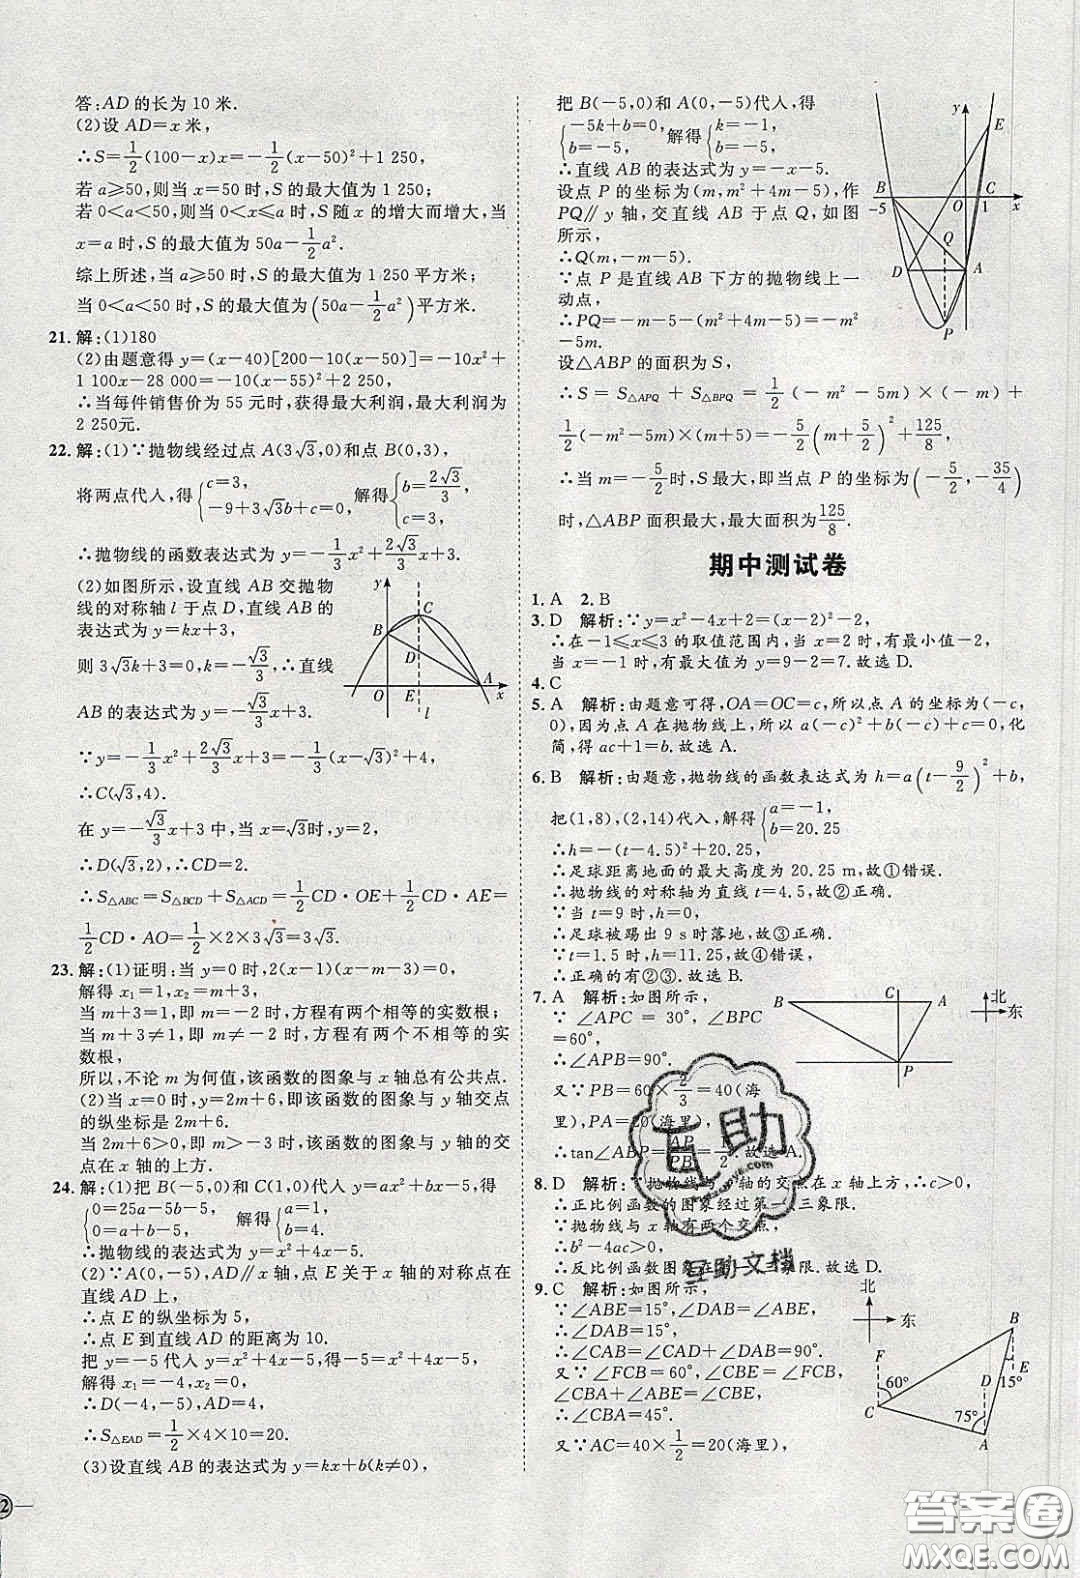 答:AD的长为10米.
(2)设AD=x米,
∴S=1/2(100-x)x=-1/2(x-50)²+1 250,
若a≥50,则当x=50时,S的最大值为1 250;
若0<a<50,则当0<x≤a时,S随x的增大而增大,当
x=a时,S的最大值为50a-1/2a².
综上所述,当a≥50时,S的最大值为1 250平方米;
当0<a<50时,S的最大值为(50a-1/2a²)平方米.
21.解:(1)180
(2)由题意得y=(x-40)[200-10(x-50)]=-10x²+
1 100x-28 000=-10(x-55)²+2 250,
∴当每件销售价为55元时,获得最大利润,最大利润为
2 250元.
22.解:(1)∵抛物线经过点A(3√3,0)和点B(0,3),
将两点代人,得{c=3, -9+3√3b+c=0, 解得{b=2√3/3, c=3,
∴抛物线的函数表达式为y=-1/3x²+2√3/3x+3.
(2)如图所示,设直线AB交抛物
线的对称轴l于点D,直线AB的
表达式为y=kx+3,
则3√3k+3=0,k=-√3/3,∴直线
AB的表达式为y=-√3/3x+3.
∵y=-1/3x²+2√3/3x+3=-1/3(x-√3)²+4,
∴C(√3,4).
在y=-√3/3x+3中,当x=√3时,y=2,
∴D(√3,2),∴CD=2.
∴S△ABC=S△BCD+S△ACD=1/2CD·OE+1/2CD·AE=
1/2CD·AO=1/2×2×3√3=3√3.
y
C
B
D
O
E
A
x
l
23.解:(1)证明:当y=0时,2(x-1)(x-m-3)=0,
解得x₁=1,x₂=m+3,
当m+3=1,即m=-2时,方程有两个相等的实数根;
当m+3≠1,即m≠-2时,方程有两个不相等的实
数根,
所以,不论m为何值,该函数的图象与x轴总有公共点.
(2)当x=0时,y=2m+6,即该函数的图象与y轴交点
的纵坐标是2m+6.
当2m+6>0,即m>-3时,该函数的图象与y轴的交
点在x轴的上方.
24.解:(1)把B(-5,0)和C(1,0)代人y=ax²+bx-5,得
{0=25a-5b-5, 0=a+b-5, 解得{a=1, b=4.
∴抛物线的表达式为y=x²+4x-5.
(2)∵A(0,-5),AD∥x轴,点E关于x轴的对称点在
直线AD上,
∴点E的纵坐标为5,
∴点E到直线AD的距离为10.
把y=-5代人y=x²+4x-5,得-5=x²+4x-5,
解得x₁=-4,x₂=0,
∴D(-4,-5),∴AD=4,
∴S△EAD=1/2×4×10=20.
(3)设直线AB的表达式为y=kx+b(k≠0),
把B(-5,0)和A(0,-5)代人,得
{-5k+b=0, b=-5, 解得{k=-1, b=-5,
∴直线AB的表达式为y=-x-5.
设点P的坐标为(m,m²+4m-5),作
PQ∥y轴,交直线AB于点Q,如图
所示,
∴Q(m,-m-5).
∵点P是直线AB下方的抛物线上一
动点,
∴PQ=-m-5-(m²+4m-5)=-m²-
5m.
设△ABP的面积为S,
∴S=S△APQ+S△BPQ=1/2(-m²-5m)×(-m)+
1/2(-m²-5m)×(m+5)=-5/2(m+5/2)²+125/8,
∴当m=-5/2时,S最大,即当点P的坐标为(-5/2,-35/4)
时,△ABP面积最大,最大面积为125/8.
y
E
B
-5
O
C
1
x
Q
D
A
P
期中测试卷
1.A 2.B
3.D 解析:∵y=x²-4x+2=(x-2)²-2,
∴在-1≤x≤3的取值范围内,当x=2时,有最小值-2,
当x=-1时,有最大值为y=9-2=7.故选D.
4.C
5.A 解析:由题意可得,OA=OC=c,所以点A的坐标为(-c,
0),因为点A在抛物线上,所以a(-c)²+b(-c)+c=0,化
简,得ac+1=b.故选A.
6.B 解析:由题意,抛物线的函数表达式为h=a(t-9/2)²+b,
把(1,8),(2,14)代入,解得{a=-1, b=20.25
∴h=-(t-4.5)²+20.25,
∴足球距离地面的最大高度为20.25 m,故①错误.
∴抛物线的对称轴为直线t=4.5,故②正确.
∵当t=9时,h=0,
∴足球被踢出9 s时落地,故③正确.
∵t=1.5时,h=11.25,故④错误,
∴正确的有②③.故选B.
7.A 解析:如图所示,
∵∠APC=30°,∠BPC
=60°,
∴∠APB=90°.
又∵PB=60×2/3=40(海
里),PA=20(海里),
∴tan∠ABP=AP/PB=1/2.故选A.
B
C
A
P
北
东
8.D 解析:∵抛物线与y轴的交点在x轴上方,∴c>0,
∴正比例函数的图象经过第一、三象限.
∵抛物线与x轴有两个交点,
∴b²-4ac>0,
∴反比例函数图象在第一、三象限.故选D.
9.C 解析:如图所示,
∵∠ABE=15°,∠DAB=∠ABE,
∴∠DAB=15°,
∴∠CAB=∠CAD+∠DAB=90°.
又∵∠FCB=60°,∠CBE=∠FCB,
∠CBA+∠ABE=∠CBE,
∴∠CBA=45°.
又∵AC=40×1/2=20(海里),
北
东
B
F
60°
D
E
15°
C
75°
A
互助
互助文档
2
答案圈
MXQE.COM